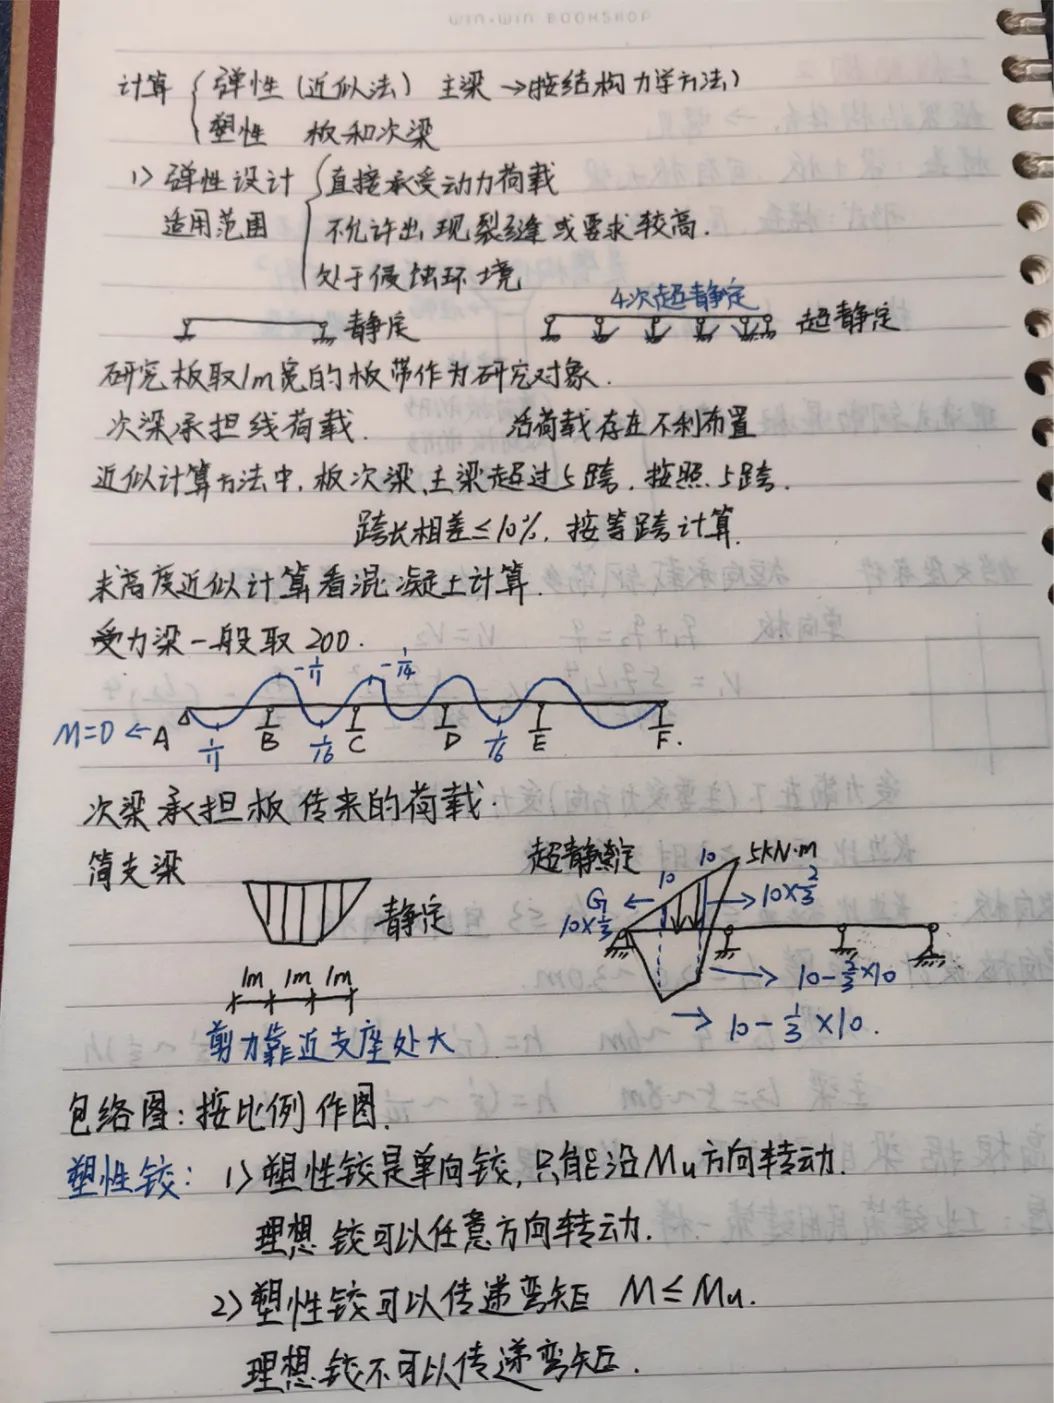 WIN·WIN BOOKSHOP
计算 { 弹性 (近似法) 主梁 → 按结构力学方法)
塑性 板和次梁
1) 弹性设计 { 直接承受动力荷载
适用范围 不允许出现裂缝或要求较高.
处于侵蚀环境
静定 4次超静定 超静定
研究板取1m宽的板带作为研究对象.
次梁承担线荷载. 活荷载存在不利布置
近似计算方法中,板次梁、主梁超过5跨.按照5跨.
跨长相差≤10%,按等跨计算.
求高度近似计算看混凝土计算.
受力梁一般取200.
-1/11 -1/14
M=0 ← A B C D E F.
1/11 1/16 1/16
次梁承担板传来的荷载.
简支梁 静定
1m 1m 1m
剪力靠近支座处大
超静定 10 10 5kN·m
G 10×1/3 10×2/3
10-2/3×10
→ 10-1/3×10.
包络图:按比例作图.
塑性铰: 1) 塑性铰是单向铰,只能沿Mu方向转动.
理想铰可以任意方向转动.
2) 塑性铰可以传递弯矩 M≤Mu.
理想铰不可以传递弯矩.